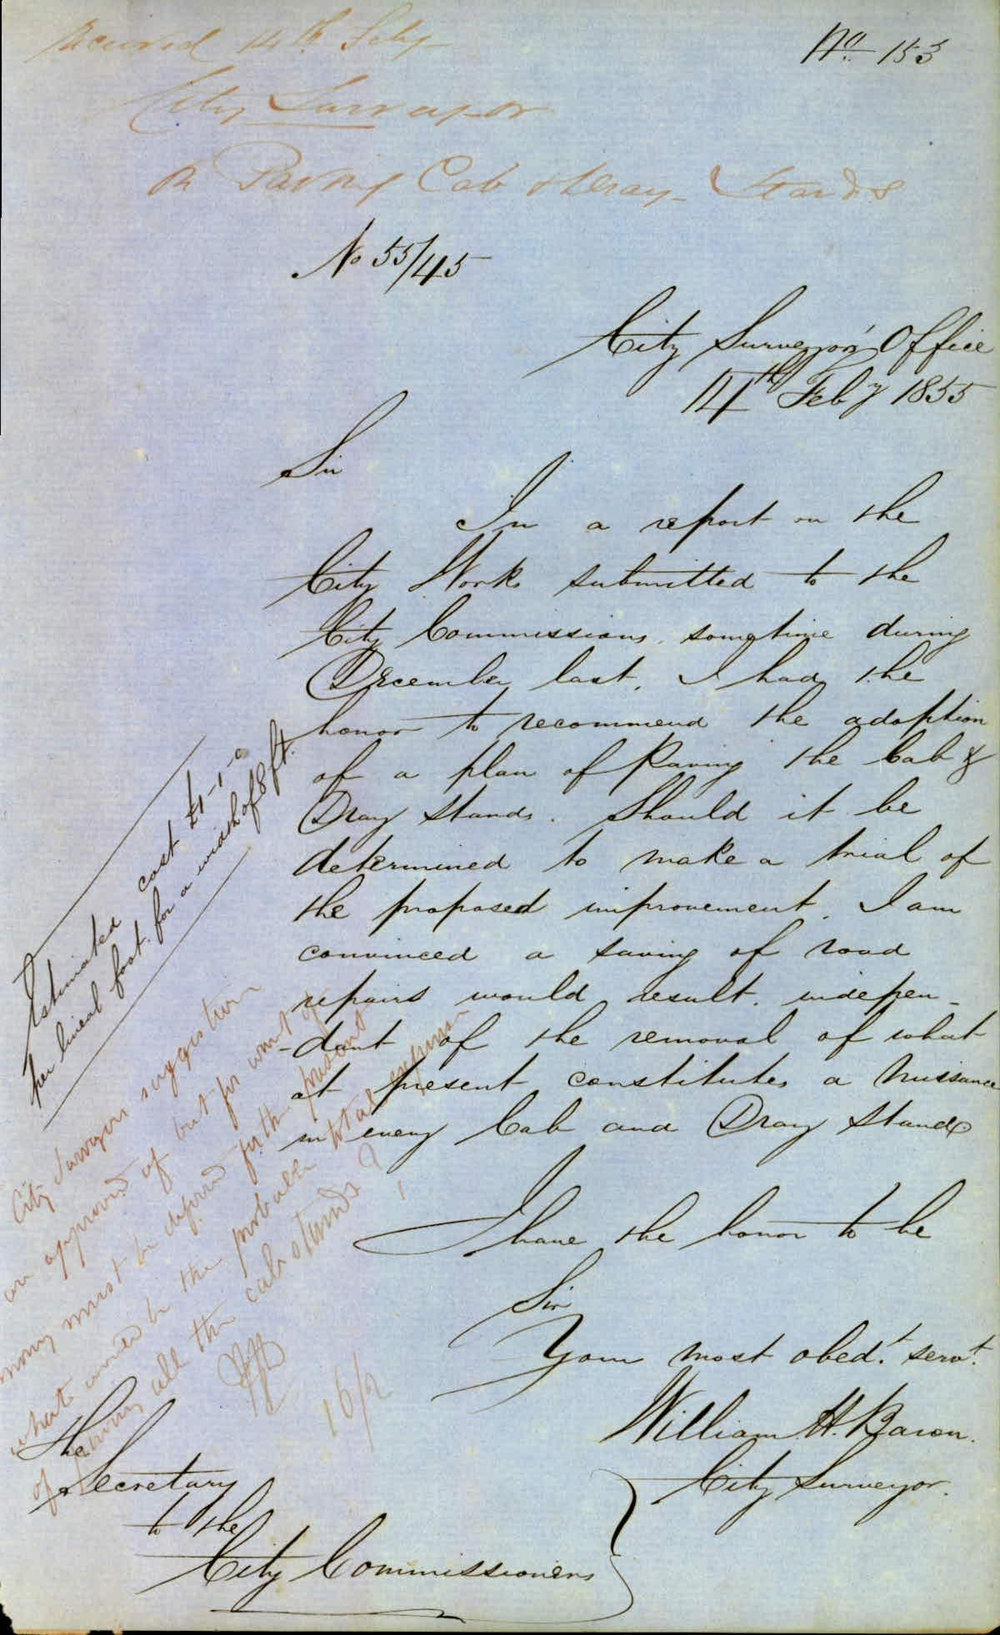 Received 14th Feby
No. 153
City Surveyor
on Paving Cab & Dray Stands
No 55/45
City Surveyors' Office
14th Feby 1855
Sir
In a report on the
City Works submitted to the
City Commissions, sometime during
December last, I had the
honor to recommend the adoption
of a plan of Paving the Cab &
Dray Stands. Should it be
determined to make a trial of
the proposed improvement, I am
convinced a saving of road
repairs would result, indepen-
-dant of the removal of what
at present constitutes a Nuissance
in every Cab and Dray Stand
I have the honor to be
Sir
Your most obedt. servt.
William H. Baron.
City Surveyor.
The
Secretary
to the
City Commissioners
Estimated cost £1-1-0
per lineal foot. for a width of 8 ft.
City Surveyors suggestion
are approved of but for want of
money must be deferred for the present
what would be the probable total expense
of paving all the cab stands?
16/2